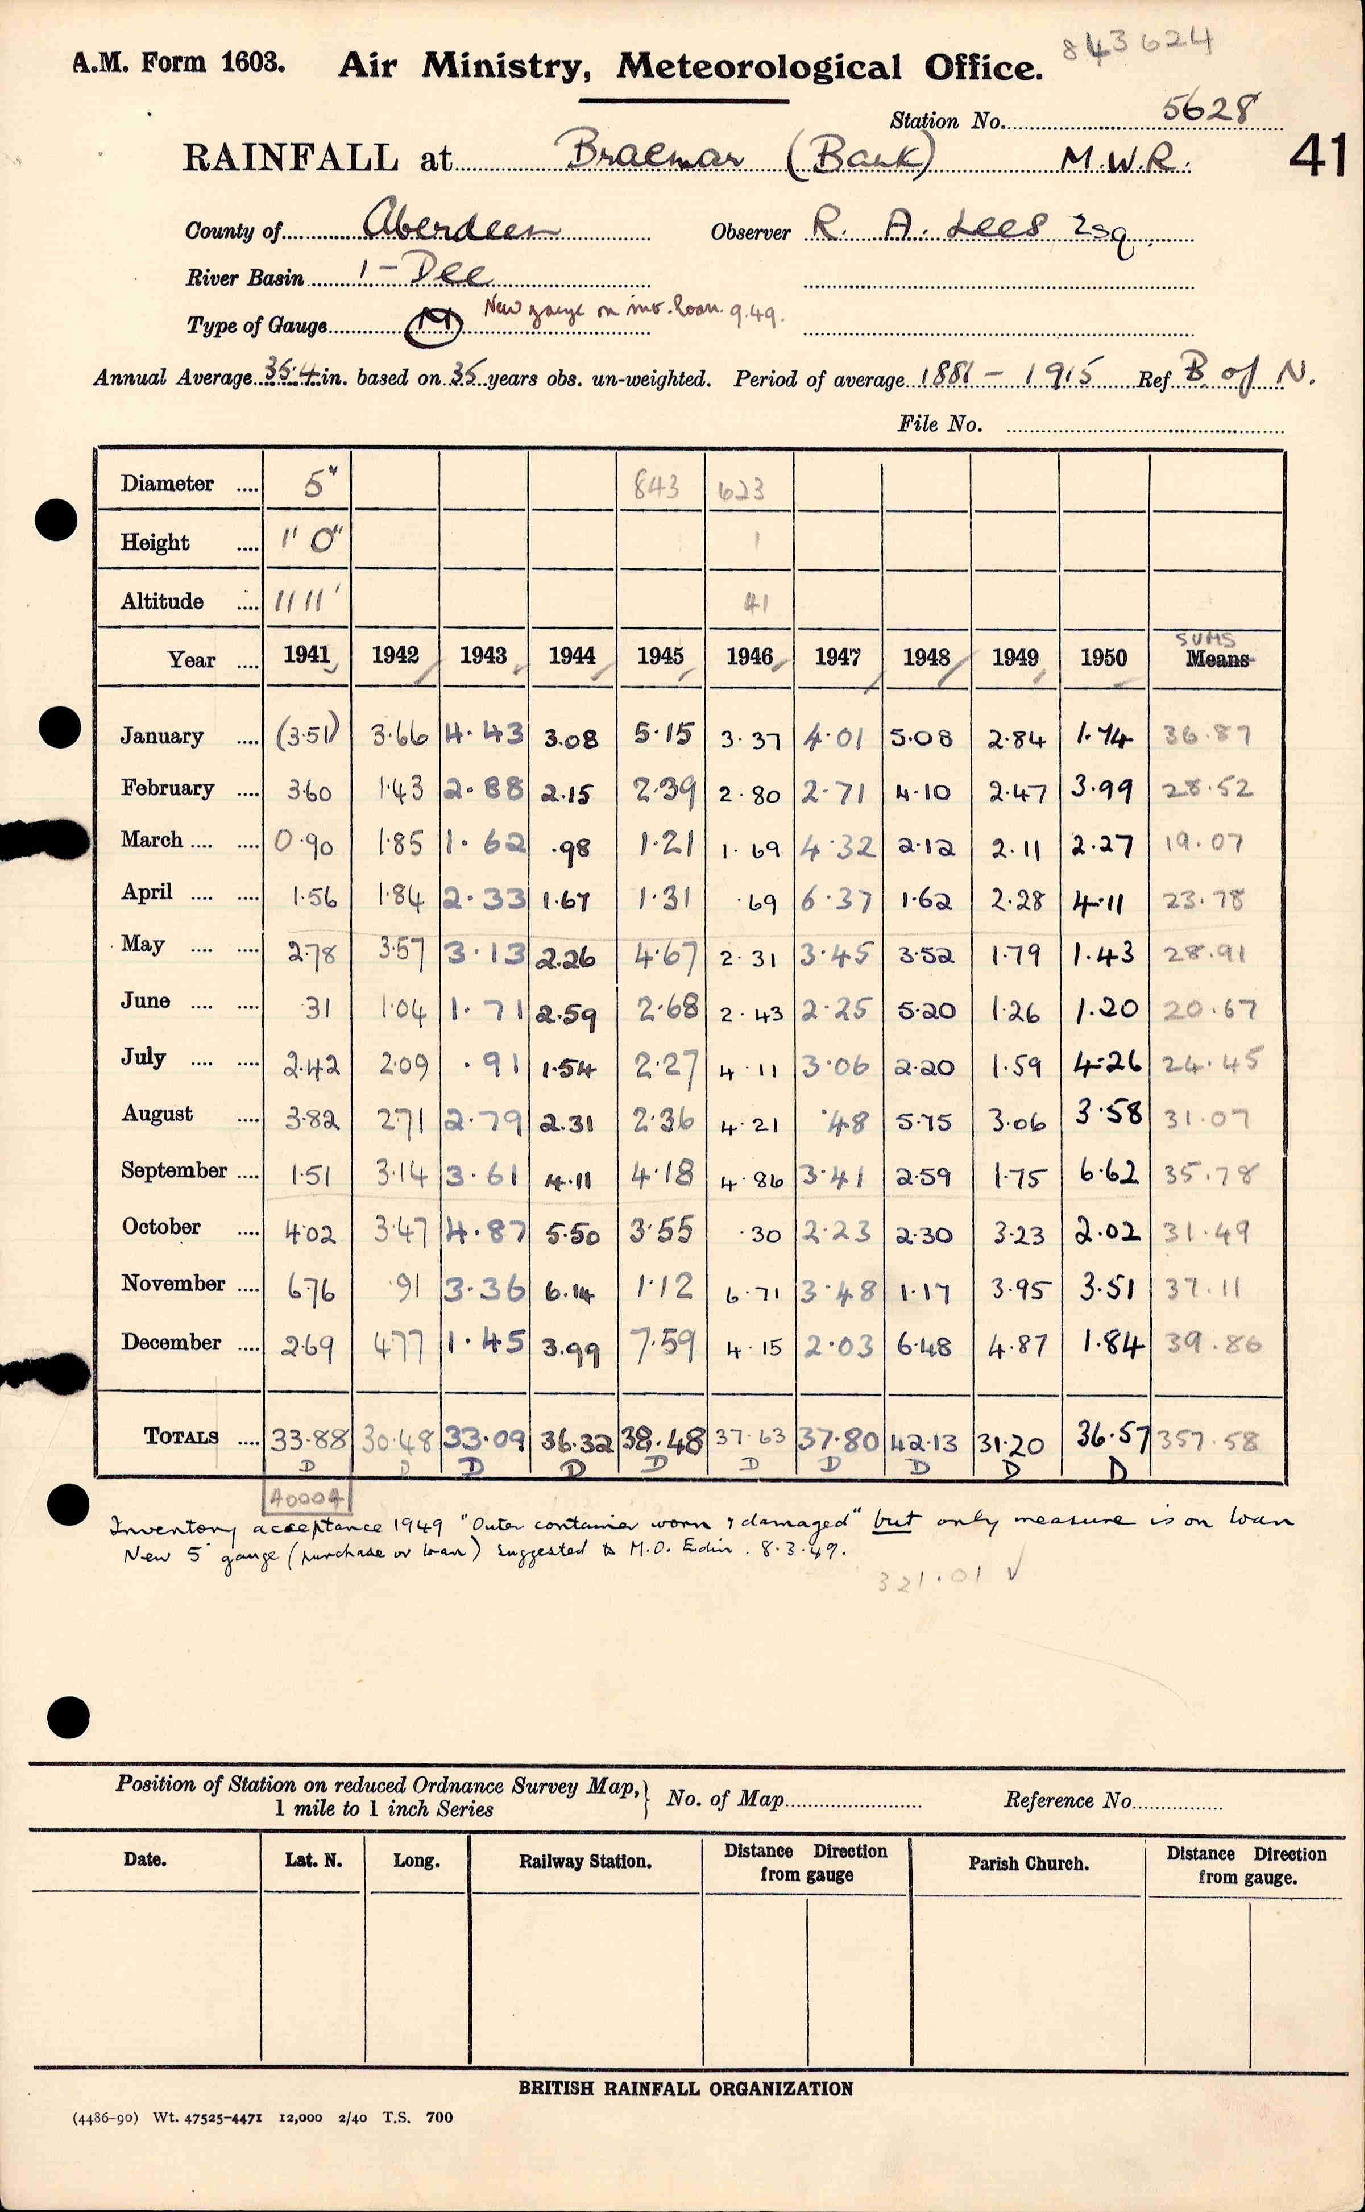 843624
A.M. Form 1603. Air Ministry, Meteorological Office.
Station No. 5628
RAINFALL at Braemar (Bank) M.W.R. 41
County of Aberdeen Observer R. A. Lees Esq.
River Basin 1 - Dee
Type of Gauge (M) New gauge on inv. loan. 9.49.
Annual Average 35.4 in. based on 35 years obs. un-weighted. Period of average 1881 - 1915 Ref B of N.
File No.
Diameter .... 5" 843 623
Height .... 1' 0" 1
Altitude .... 1111' 41
SUMS
Year .... 1941 1942 1943 1944 1945 1946 1947 1948 1949 1950 Means
January .... (3.51) 3.66 4.43 3.08 5.15 3.37 4.01 5.08 2.84 1.74 36.87
February .... 3.60 1.43 2.88 2.15 2.39 2.80 2.71 4.10 2.47 3.99 28.52
March .... .... 0.90 1.85 1.62 .98 1.21 1.69 4.32 2.12 2.11 2.27 19.07
April .... .... 1.56 1.84 2.33 1.67 1.31 .69 6.37 1.62 2.28 4.11 23.78
May .... .... 2.78 3.57 3.13 2.26 4.67 2.31 3.45 3.52 1.79 1.43 28.91
June .... .... .31 1.04 1.71 2.59 2.68 2.43 2.25 5.20 1.26 1.20 20.67
July .... .... 2.42 2.09 .91 1.54 2.27 4.11 3.06 2.20 1.59 4.26 24.45
August .... 3.82 2.71 2.79 2.31 2.36 4.21 .48 5.75 3.06 3.58 31.07
September .... 1.51 3.14 3.61 4.11 4.18 4.86 3.41 2.59 1.75 6.62 35.78
October .... 4.02 3.47 4.87 5.50 3.55 .30 2.23 2.30 3.23 2.02 31.49
November .... 6.76 .91 3.36 6.14 1.12 6.71 3.48 1.17 3.95 3.51 37.11
December .... 2.69 4.77 1.45 3.99 7.59 4.15 2.03 6.48 4.87 1.84 39.86
TOTALS .... 33.88 30.48 33.09 36.32 38.48 37.63 37.80 42.13 31.20 36.57 357.58
D D D D D D D D D D
A000A
Inventory acceptance 1949 "Outer container worn & damaged" but only measure is on loan
New 5" gauge (purchase or loan) suggested to M.O. Edin. 8.3.49.
321.01 √
Position of Station on reduced Ordnance Survey Map, } No. of Map Reference No
1 mile to 1 inch Series
Date. Lat. N. Long. Railway Station. Distance Direction from gauge Parish Church. Distance Direction from gauge.
BRITISH RAINFALL ORGANIZATION
(4486-90) Wt. 47525-4471 12,000 2/40 T.S. 700